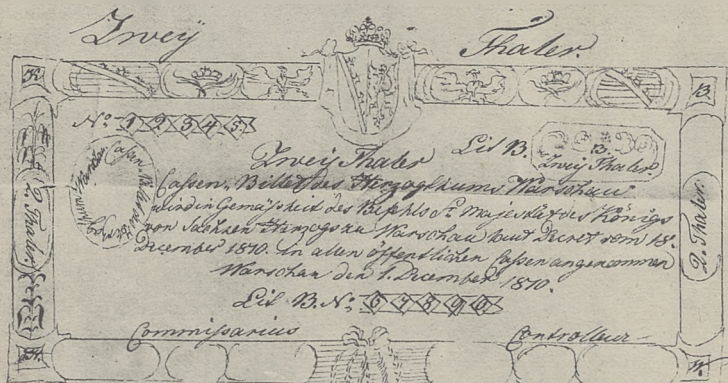 Zweÿ Thaler.
K B.
No. 1 2 3 4 5
Lit B.
B.
Zweÿ Thaler.
Zweÿ Thaler
Cassen-Billet des Herzogthums Warschau
wird in Gemässheit des Befehls Sr. Majestät des Königs
von Sachsen Herzogs zu Warschau laut Decret vom 18t
December 1810. in allen öffentlichen Cassen angenommen
Warschau den 1. December 1810.
Lit B. No. 6 7 8 9 0
Commissarius Controlleur
2. Thaler.
2. Thaler.